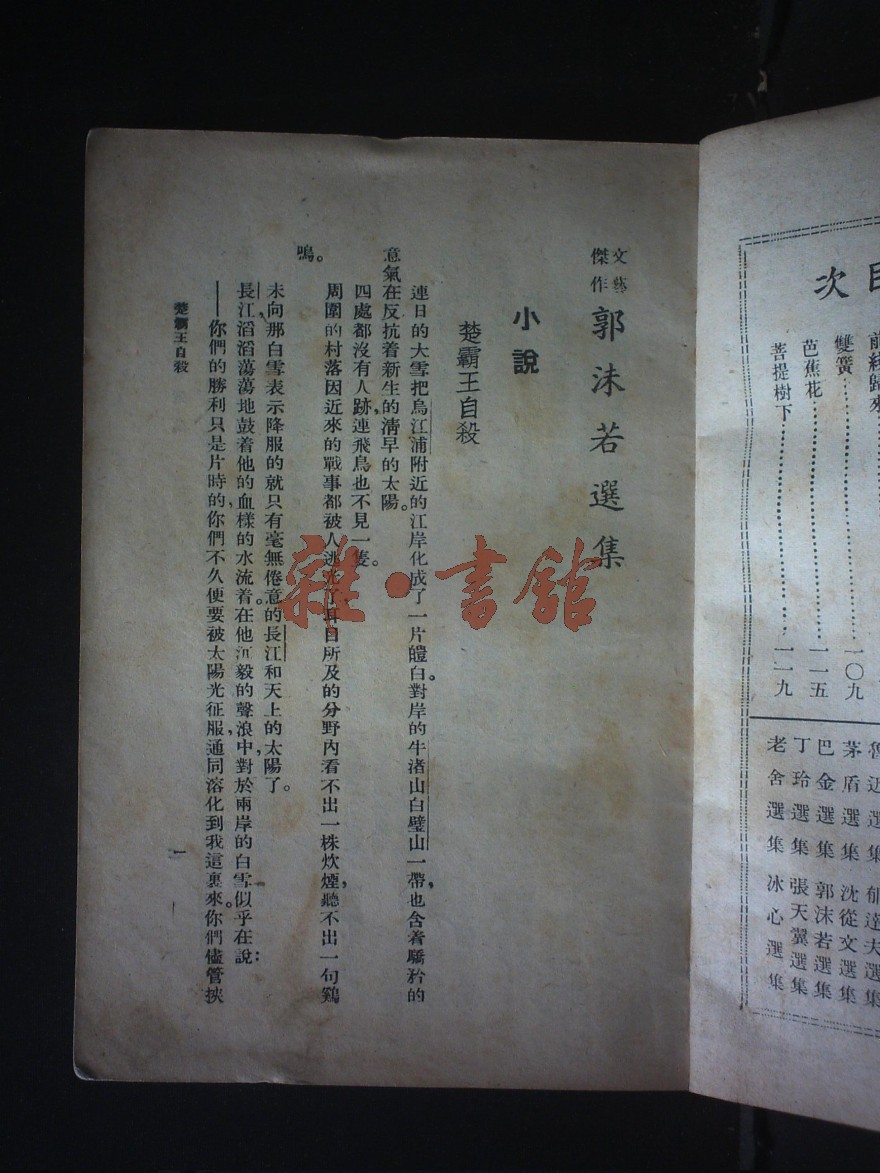 目次
前綫歸來
雙簧……一〇九
芭蕉花……一一五
菩提樹下……一一九
魯迅選集 郁達夫選集
茅盾選集 沈從文選集
巴金選集 郭沫若選集
丁玲選集 張天翼選集
老舍選集 冰心選集
文藝傑作 郭沫若選集
小說
楚霸王自殺
連日的大雪把烏江浦附近的江岸化成了一片皚白。對岸的牛渚山白璧山一帶，也含着驕矜的
意氣在反抗着新生的清早的太陽。
四處都沒有人跡，連飛鳥也不見一隻。
周圍的村落因近來的戰事都被人逃光了，耳目所及的分野內看不出一株炊煙，聽不出一句鷄
鳴。
未向那白雪表示降服的就只有毫無倦意的長江和天上的太陽了。
長江滔滔蕩蕩地鼓着他的血樣的水流着。在他沉毅的聲浪中，對於兩岸的白雪似乎在說：
——你們的勝利只是片時的，你們不久便要被太陽光征服，通同溶化到我這裏來。你們儘管挾
楚霸王自殺
一
雜·書館